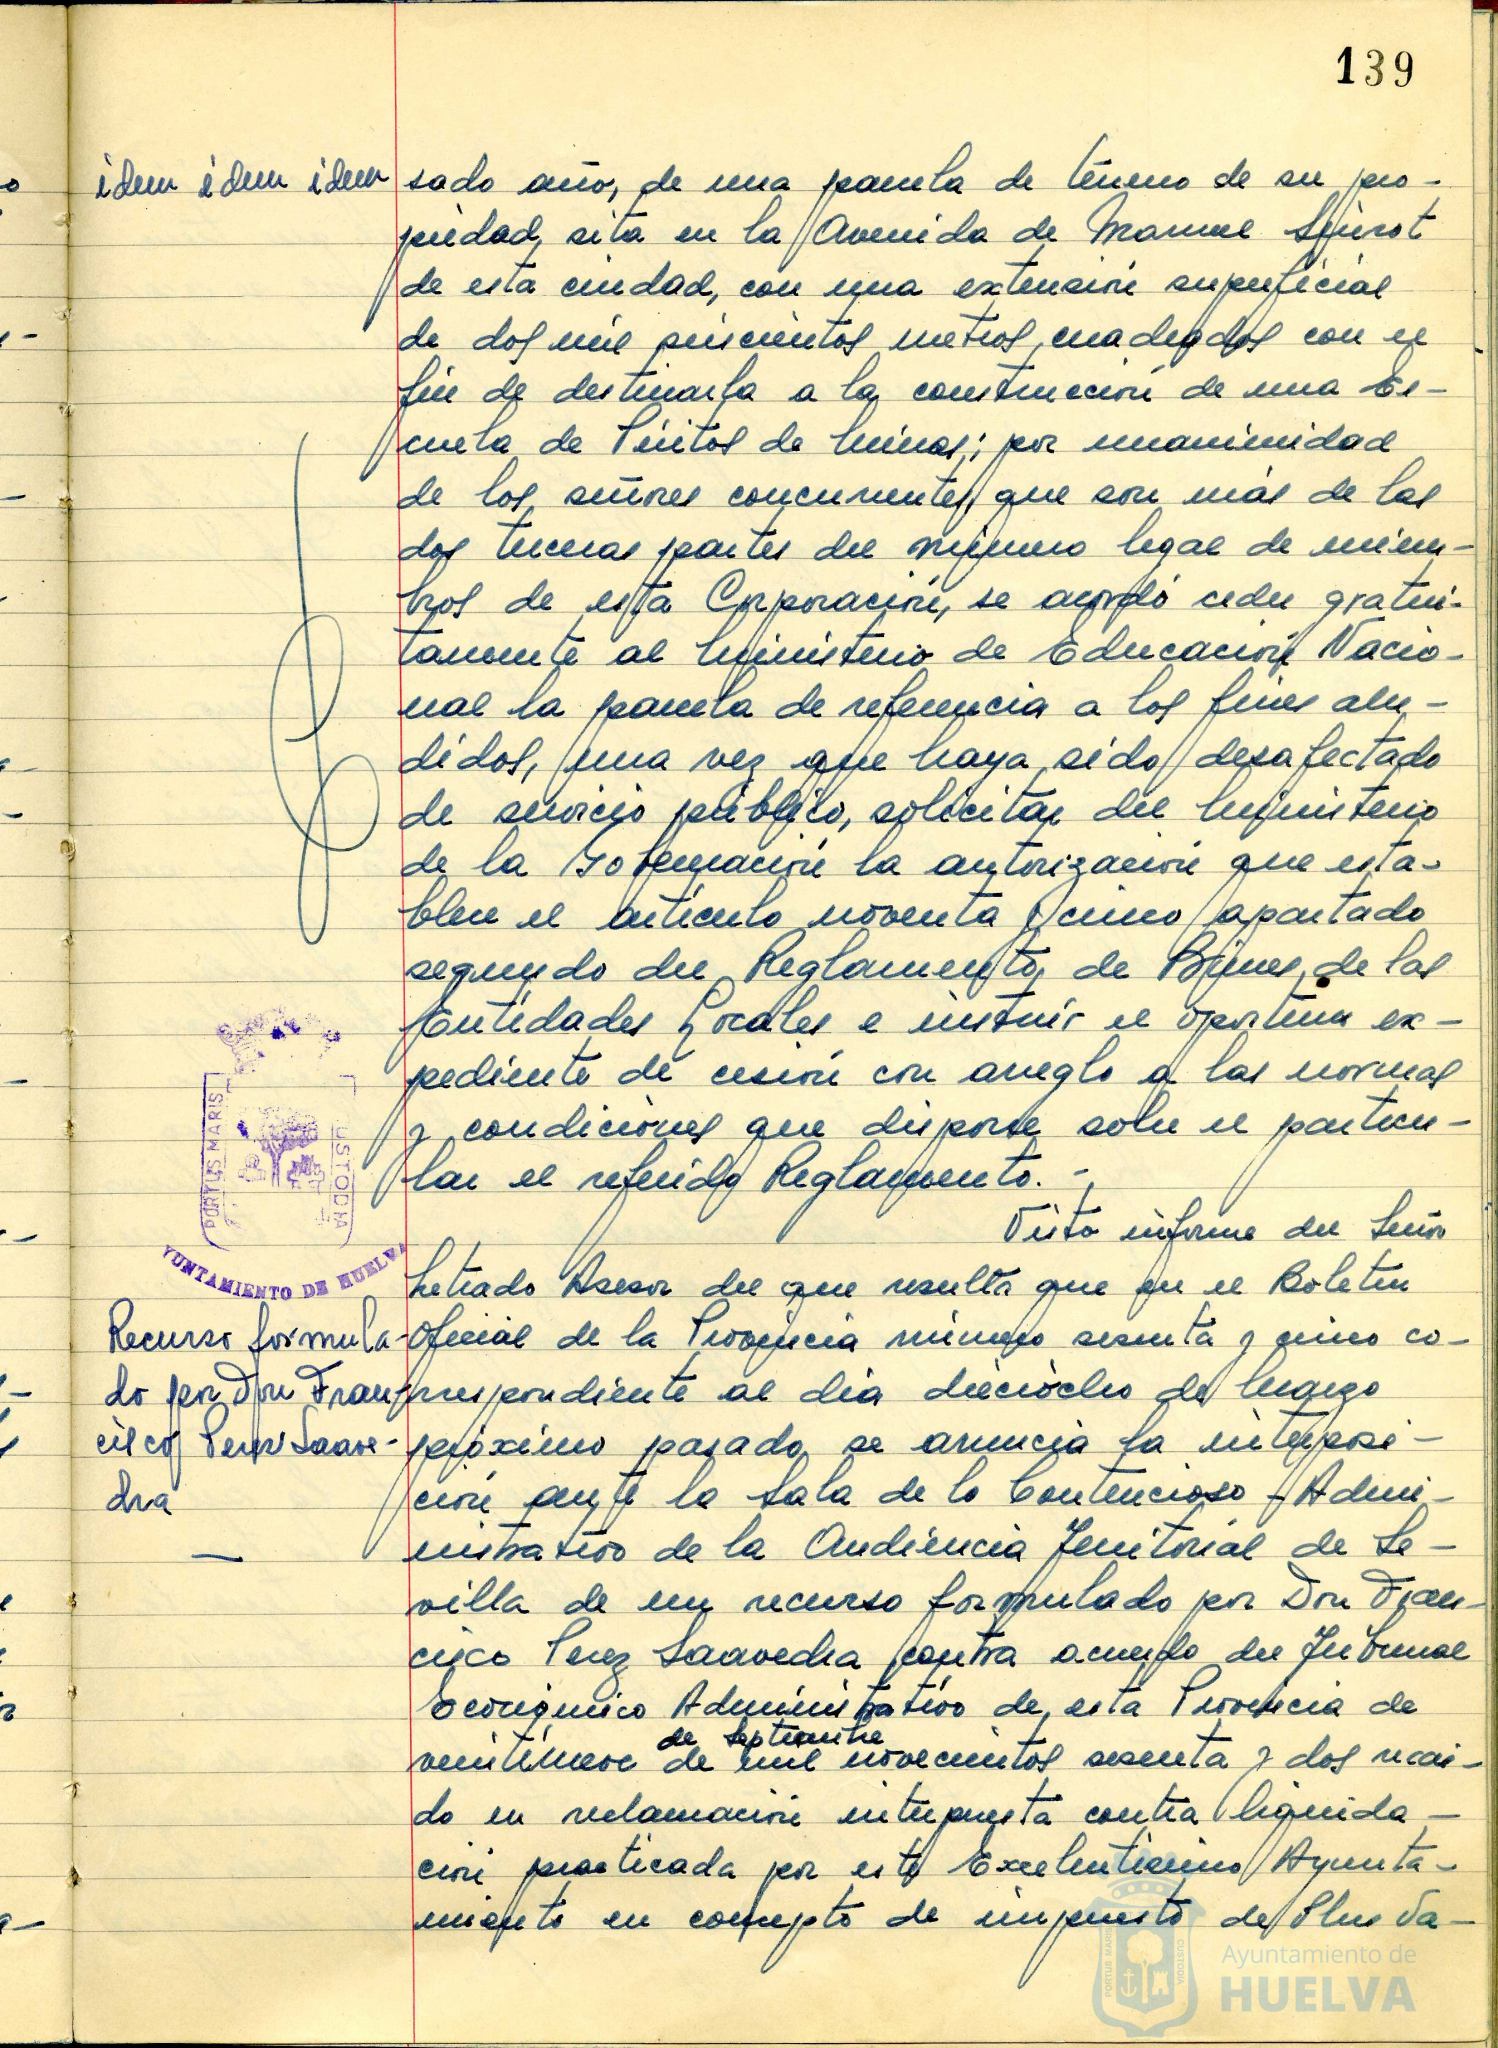 139
idem idem idem
sado año, de una parcela de terreno de su pro-
piedad, sita en la Avenida de Manuel Siurot
de esta ciudad, con una extensión superficial
de dos mil quinientos metros cuadrados con el
fin de destinarla a la construcción de una Es-
cuela de Peritos de Minas; por unanimidad
de los señores concurrentes, que son más de las
dos terceras partes del número legal de miem-
bros de esta Corporación, se acordó ceder gratui-
tamente al Ministerio de Educación Nacio-
nal la parcela de referencia a los fines alu-
didos, una vez que haya sido desafectado
de servicio público, solicitar del Ministerio
de la Gobernación la autorización que esta-
blece el artículo noventa y cinco apartado
segundo del Reglamento de Bienes de las
Entidades Locales e instruir el oportuno ex-
pediente de cesión con arreglo a las normas
y condiciones que dispone sobre el particu-
lar el referido Reglamento. -
PORTUS MARIS
CUSTODIA
AYUNTAMIENTO DE HUELVA
Recurso formula-
do por Don Fran-
cisco Perez Saave-
dra
Visto informe del Señor
Letrado Asesor del que resulta que en el Boletin
Oficial de la Provincia número sesenta y cinco co-
rrespondiente al día dieciocho de Marzo
próximo pasado se anuncia la interposi-
ción ante la Sala de lo Contencioso-Admi-
nistrativo de la Audiencia Territorial de Se-
villa de un recurso formulado por Don Fran-
cisco Perez Saavedra contra acuerdo del Tribunal
Económico Administrativo de esta Provincia de
de Septiembre
veintinueve de mil novecientos sesenta y dos recai-
do en reclamación interpuesta contra liquida-
ción practicada por este Excelentísimo Ayunta-
miento en concepto de impuesto de Plus Va-
PORTUS MARIS
CUSTODIA
Ayuntamiento de
HUELVA